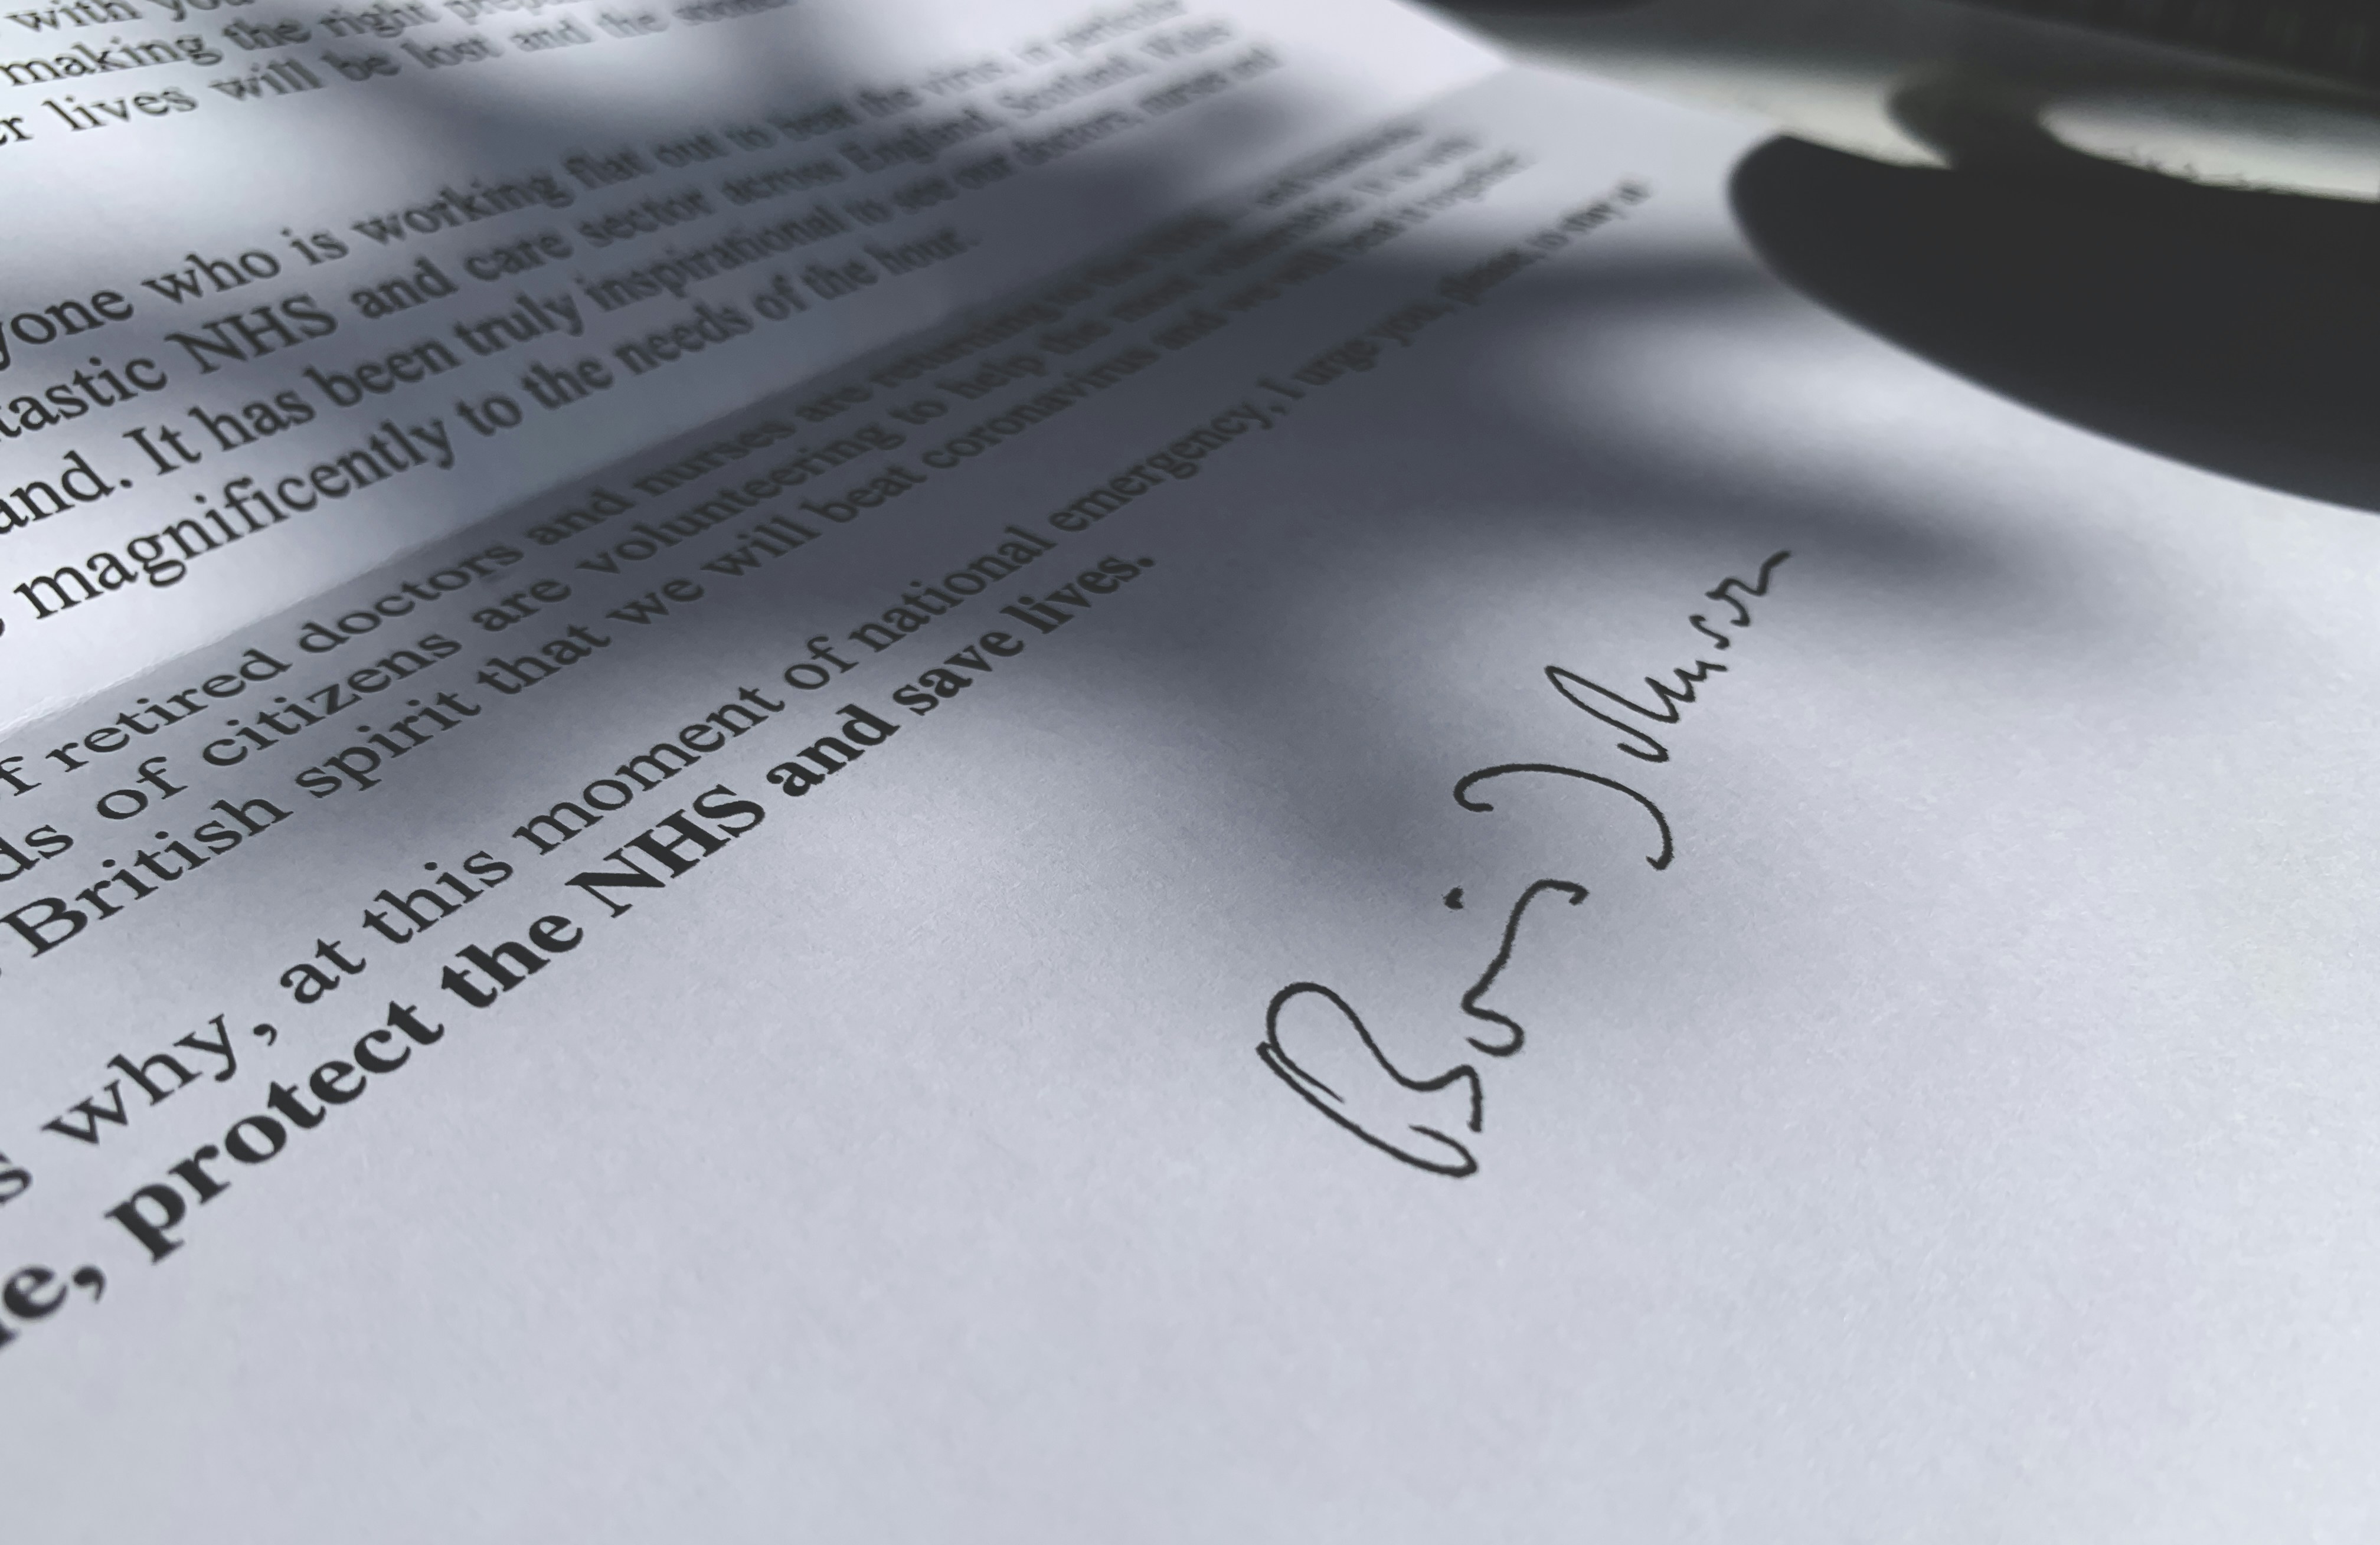 with you
making the right
r lives will be lost and the
yone who is working flat out to beat the virus, in particular
tastic NHS and care sector across England, Scotland, Wales
and. It has been truly inspirational to see our doctors, nurses and
magnificently to the needs of the hour.
f retired doctors and nurses are returning to the NHS
ds of citizens are volunteering to help the most vulnerable. It is with
British spirit that we will beat coronavirus and we will beat it together.
s why, at this moment of national emergency, I urge you, please, to stay at
e, protect the NHS and save lives.
Boris Johnson